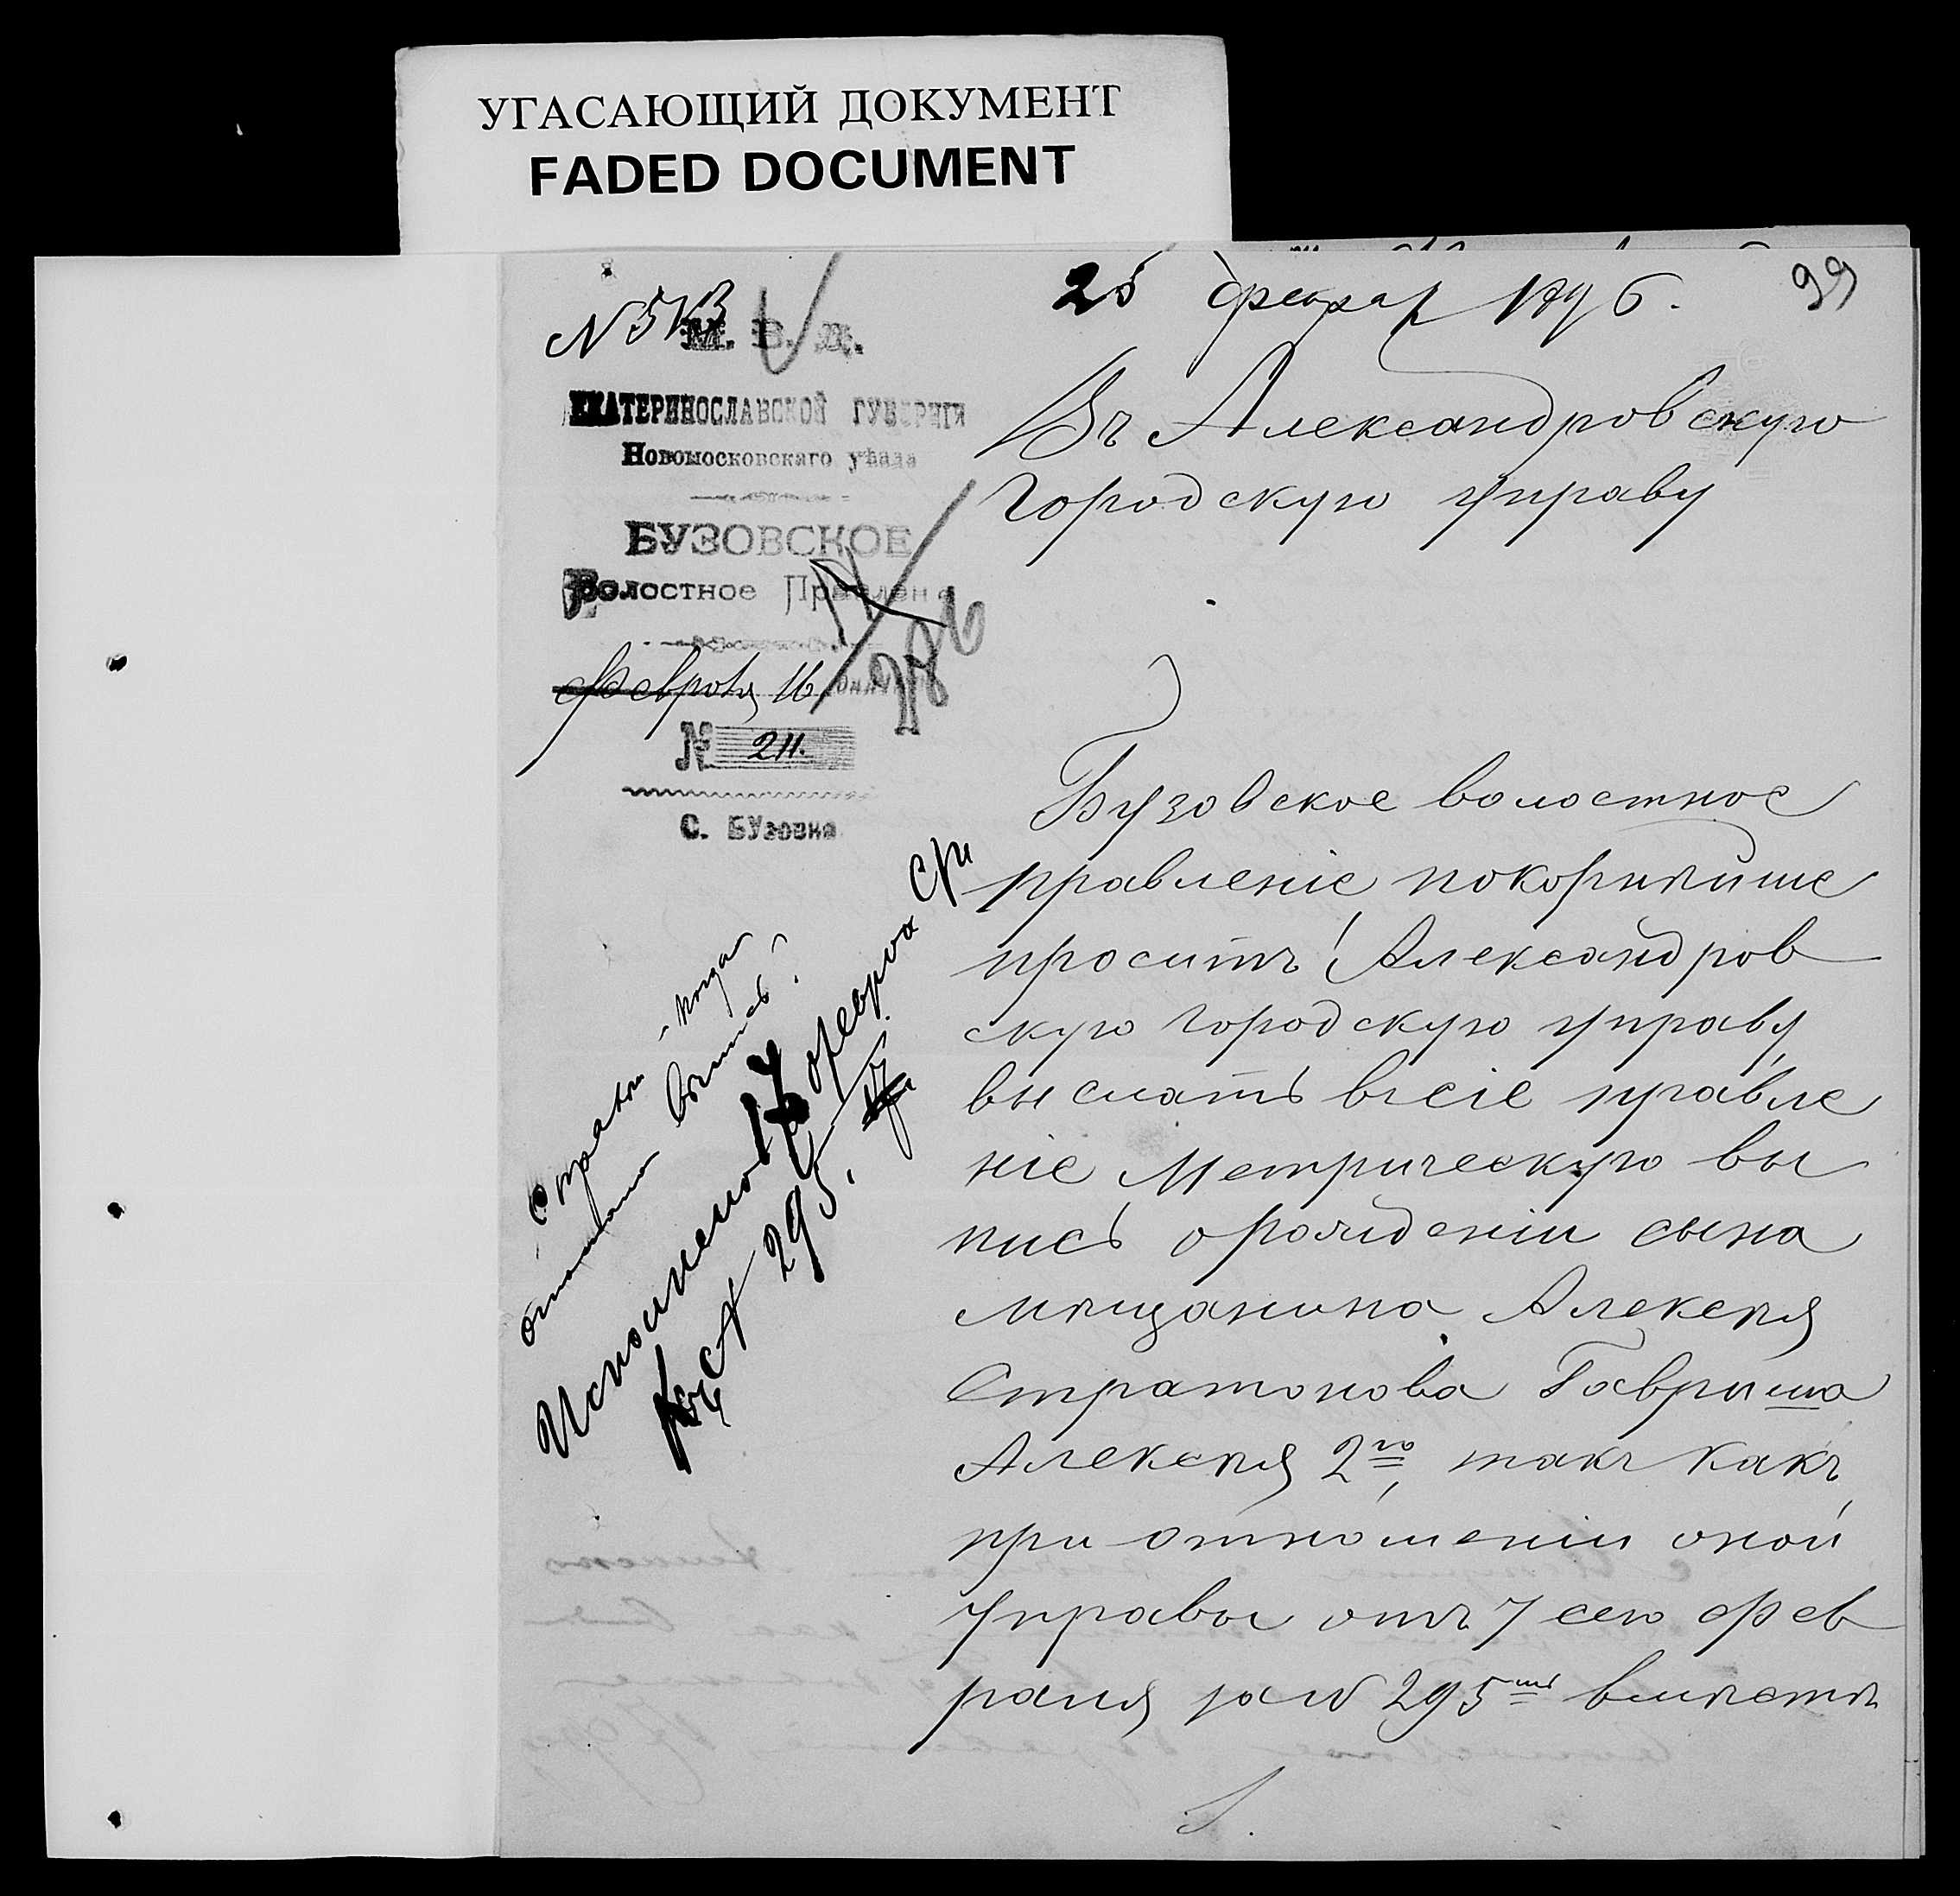 УГАСАЮЩИЙ ДОКУМЕНТ
FADED DOCUMENT
99
25 феврал 1896.
N 513
М. В. Д.
ЕКАТЕРИНОСЛАВСКОЙ ГУБЕРНІИ
Новомосковскаго уѣзда
БУЗОВСКОЕ
Волостное Правлен
Февраля 16
№ 211.
С. Бузовка
Въ Александровскую
Городскую управу
Бузовское волостное
правленіе покорнѣише
проситъ Александров
скую городскую управу
выслать въ сіе правле
ніе Метрическую вы
пись о рожденіи сына
мѣщанина Алексѣя
Стратонова Гавриша
Алексѣя 2го, такъ какъ
при отношеніи оной
управы отъ 7 сего фев
раля за N 295мъ вмѣстѣ
когда
отправлена выпись?
Исполнено 17 февраля
295.